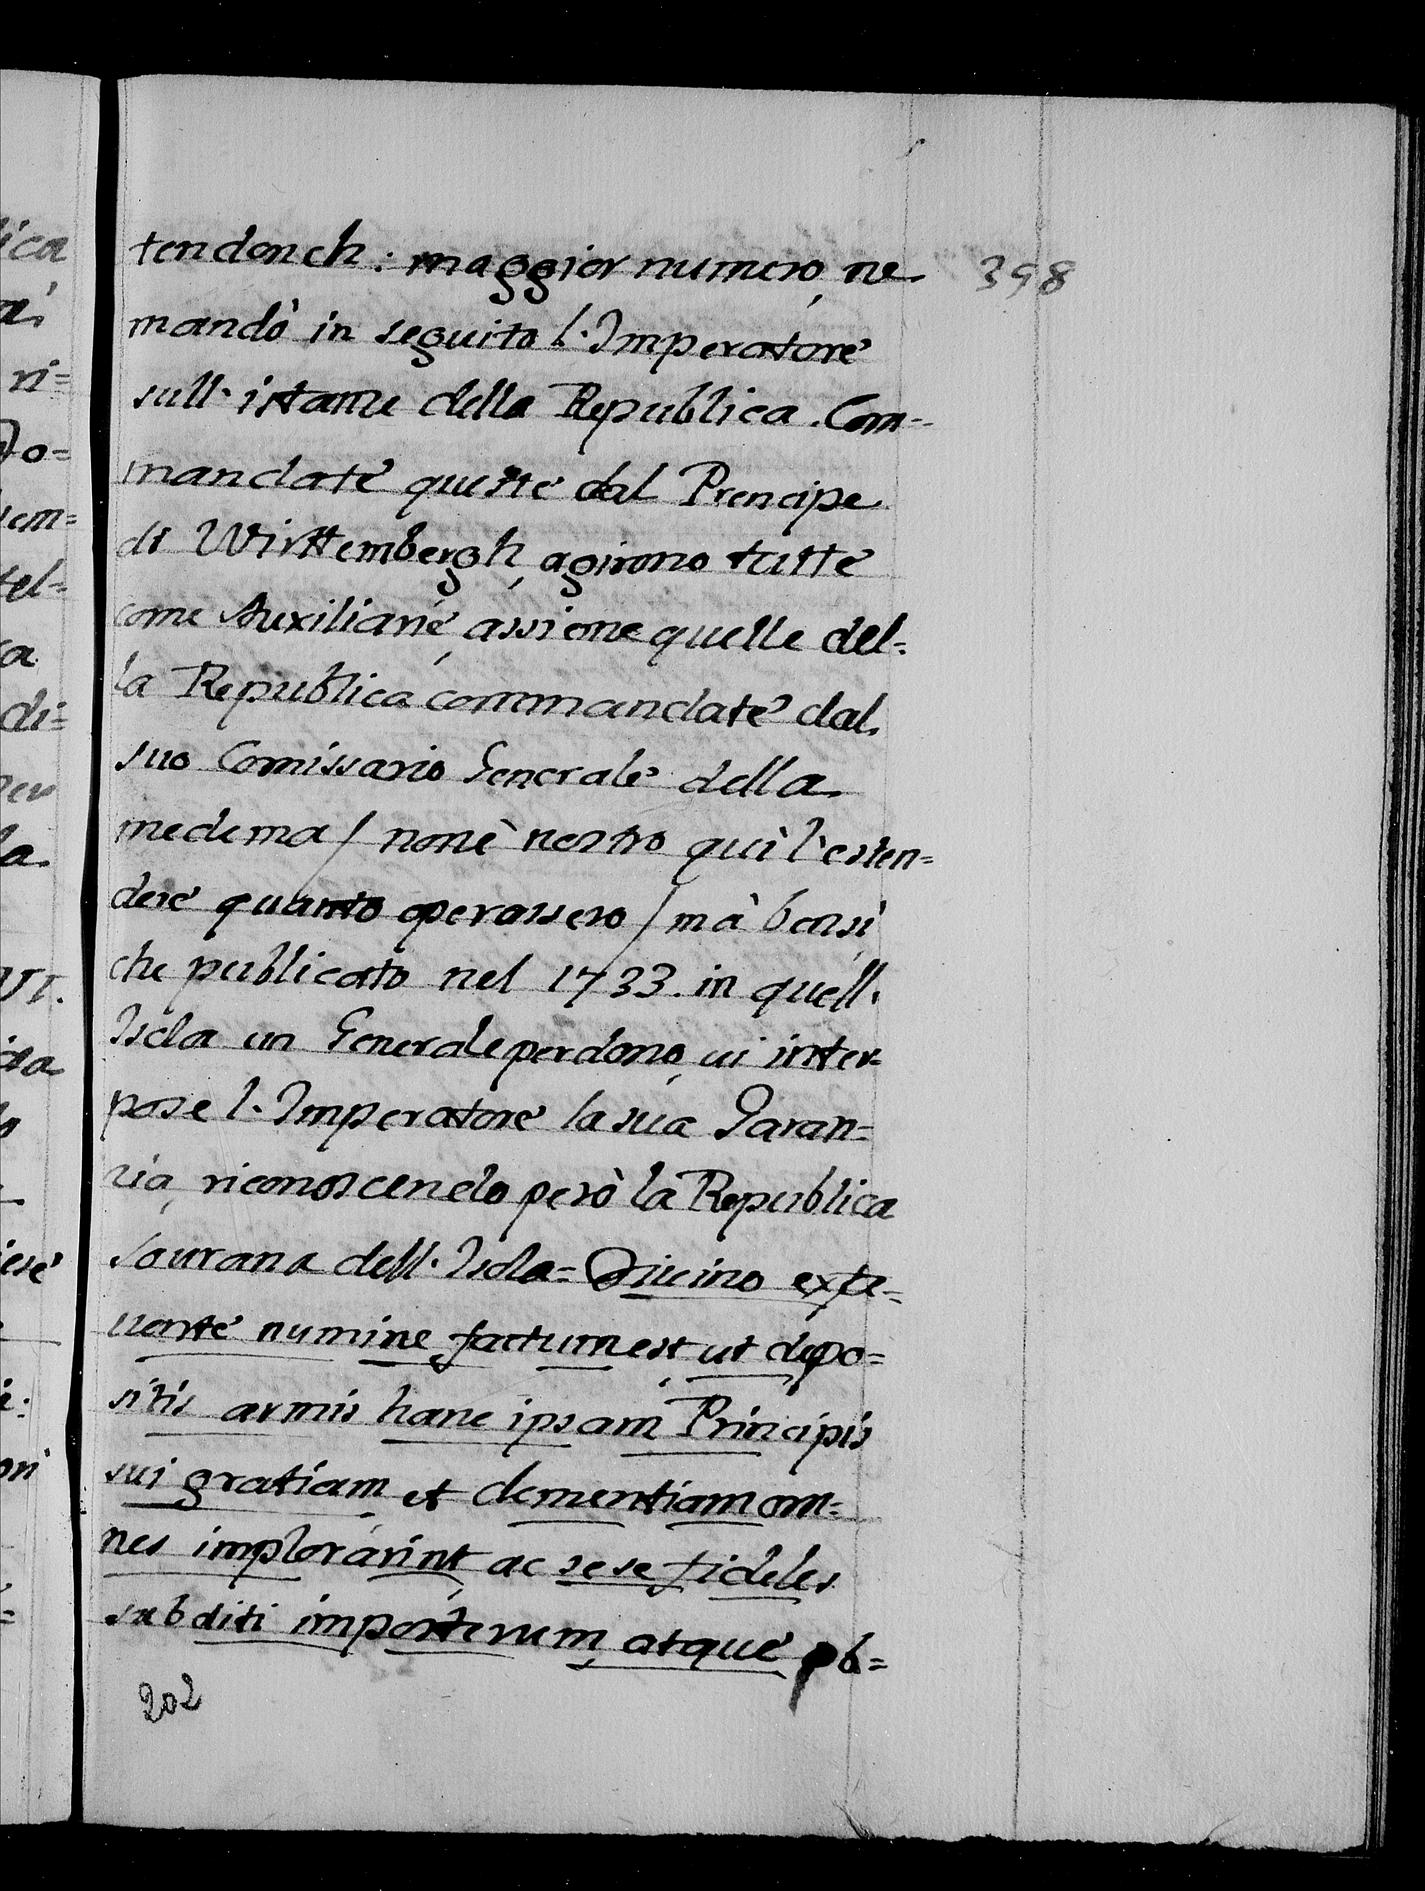 tendonck: maggior numero, ne
398
mandò in seguito l'Imperatore
sull'istanze della Republica. Com-
mandate queste dal Prencipe
di Wirttembergh, agirono tutte
come Auxiliarie, assieme quelle del-
la Republica commandate dal
suo Comissario Generale della
medema / non è nostro quì l'esten=
dere quanto operassero / mà bensì
che publicato nel 1733. in quell'
Isola un Generale perdono, ui inter=
pose l'Imperatore la sua Garan=
zia, riconoscendo però la Republica
sourana dell'Isola= Diuino exte-
uante numine factum est, ut depo=
sitis armis hanc ipsam Principis
sui gratiam, et clementiam om=
nes implorárint, ac sese fideles
subditi imposterum, atque ob=
202
ica
ri=
do=
tem=
tel=
di=
la
VI.